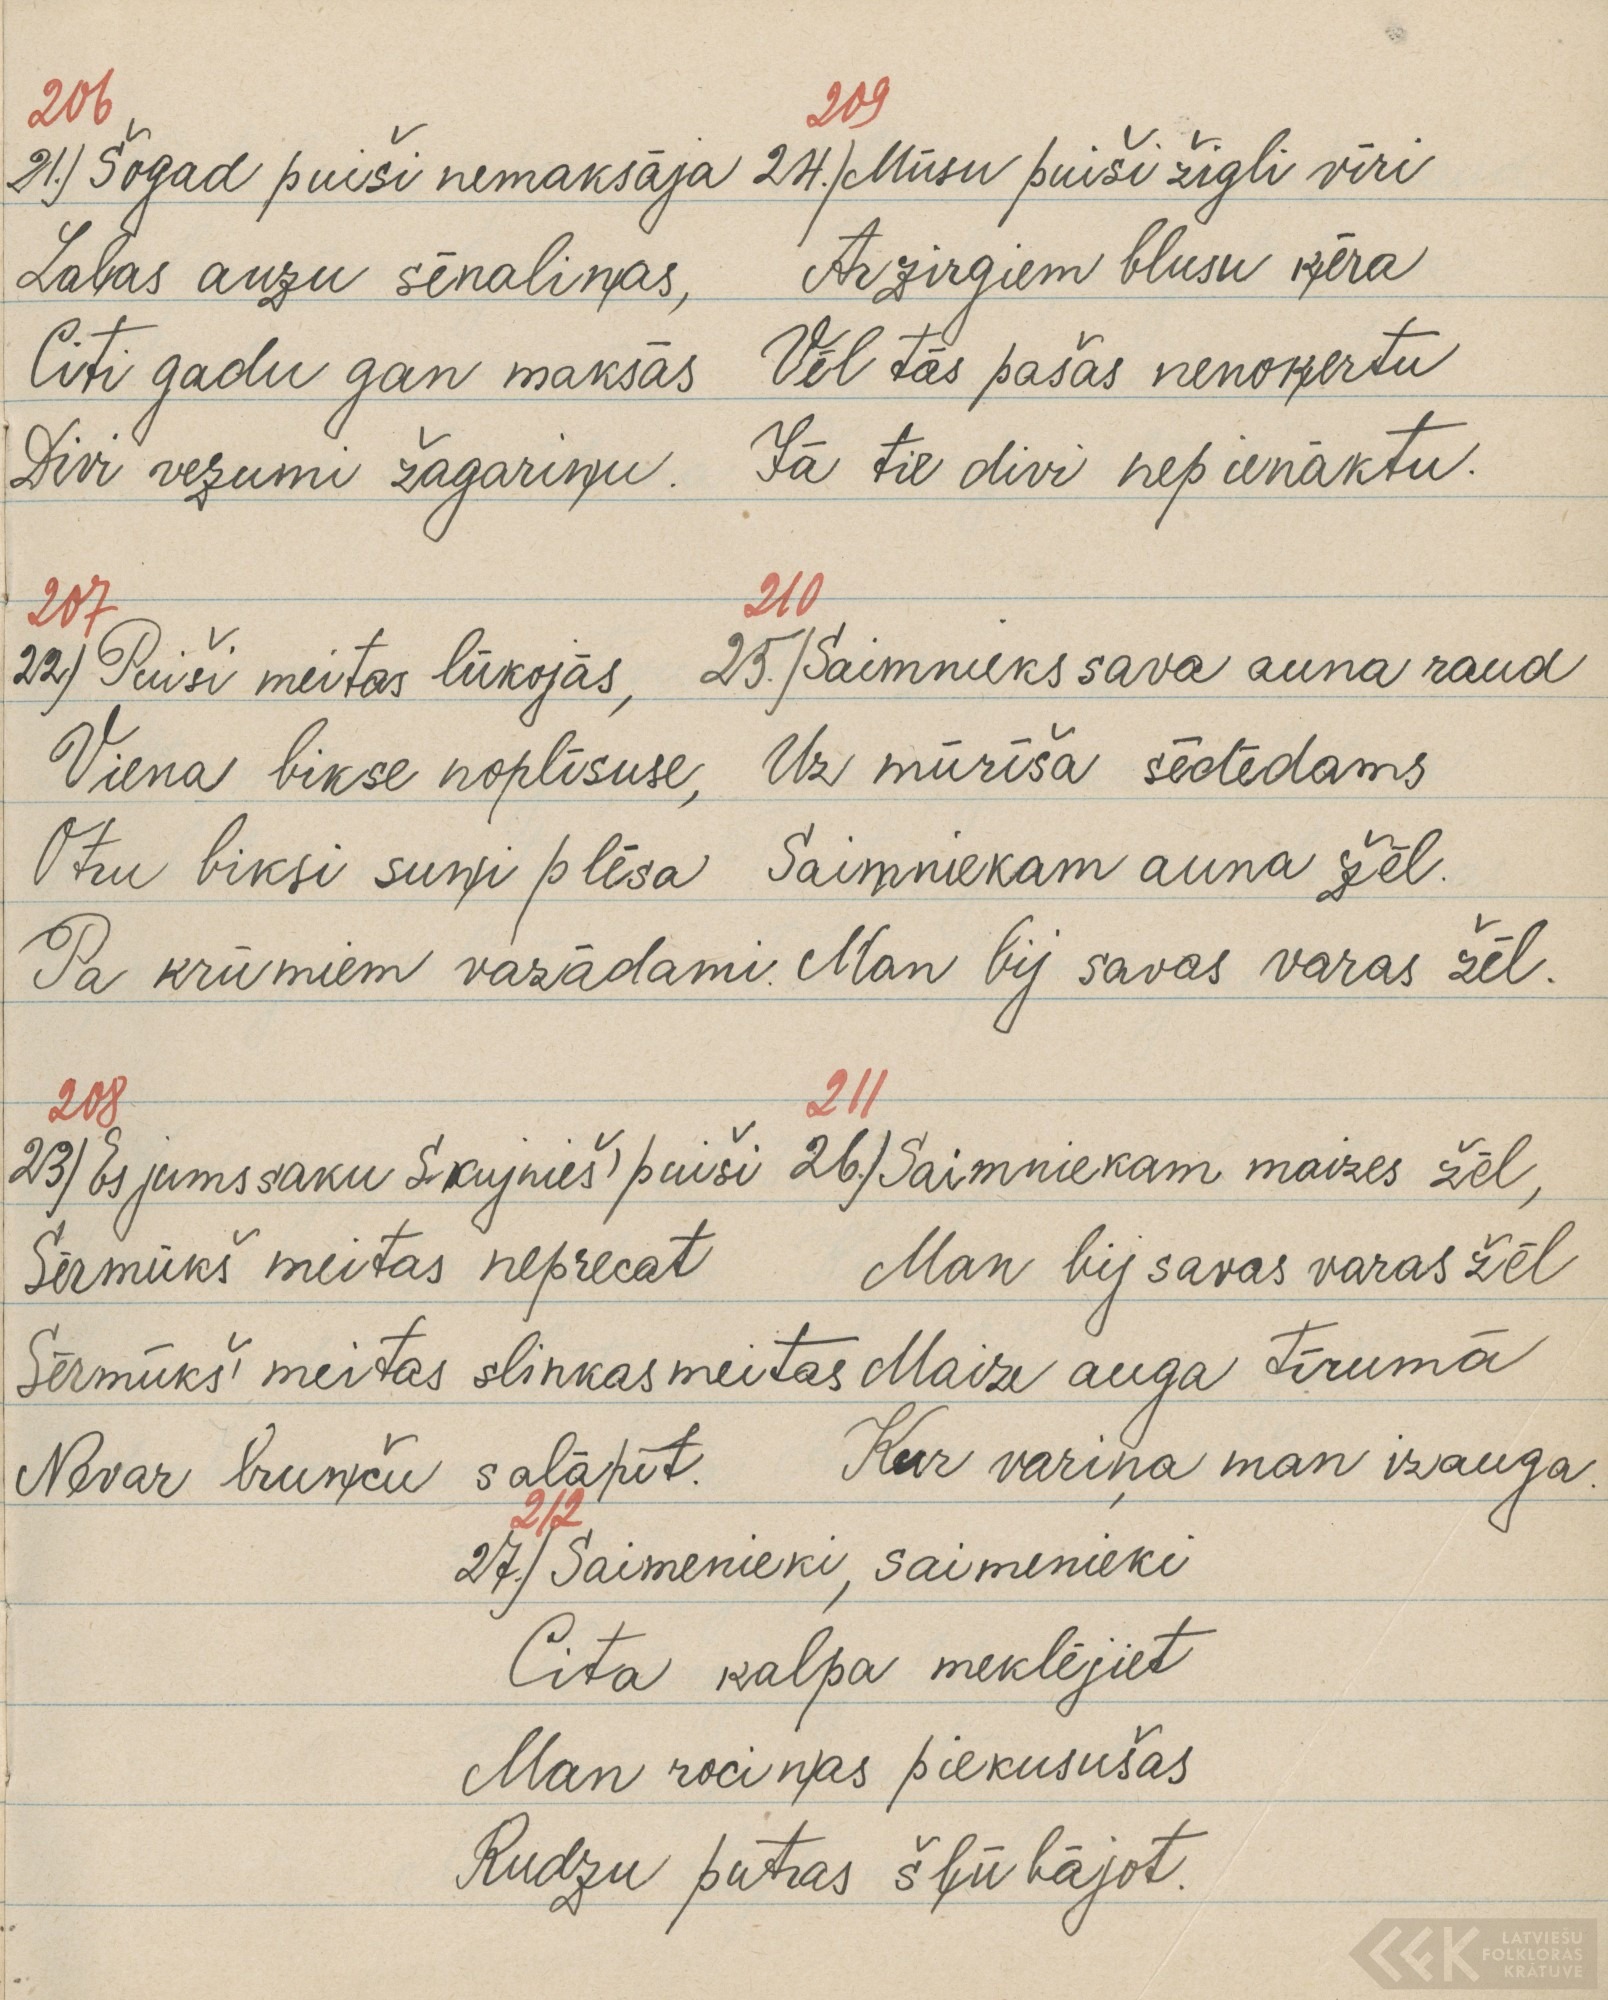 206
21.) Šogad puiši nemaksāja
Labas auzu sēnaliņas,
Citi gadu gan maksās
Divi vezumi žagariņu.
207
22) Puiši meitas lūkojās,
Viena bikse noplīsuse,
Otru biksi suņi plēsa
Pa krūmiem vazādami.
208
23) Es jums saku Skujnieš' puiši
Sērmūkš meitas neprecat
Sērmūkš' meitas slinkas meitas
Nevar brunču salāpīt.
209
24.) Mūsu puiši žigli vīri
Ar zirgiem blusu ķēra
Vēl tās pašas nenoķertu
Jā tie divi nepienāktu.
210
25.) Saimnieks sava auna raud
Uz mūrīša sēdēdams
Saimniekam auna žēl.
Man bij savas varas žēl.
211
26.) Saimniekam maizes žēl,
Man bij savas varas žēl
Maize auga tīrumā
Kur variņa man izauga.
212
27.) Saimenieki, saimenieki
Cita kalpa meklējiet
Man rociņas piekusušas
Rudzu putras šļūbājot.
LATVIEŠU
FOLKLORAS
KRĀTUVE